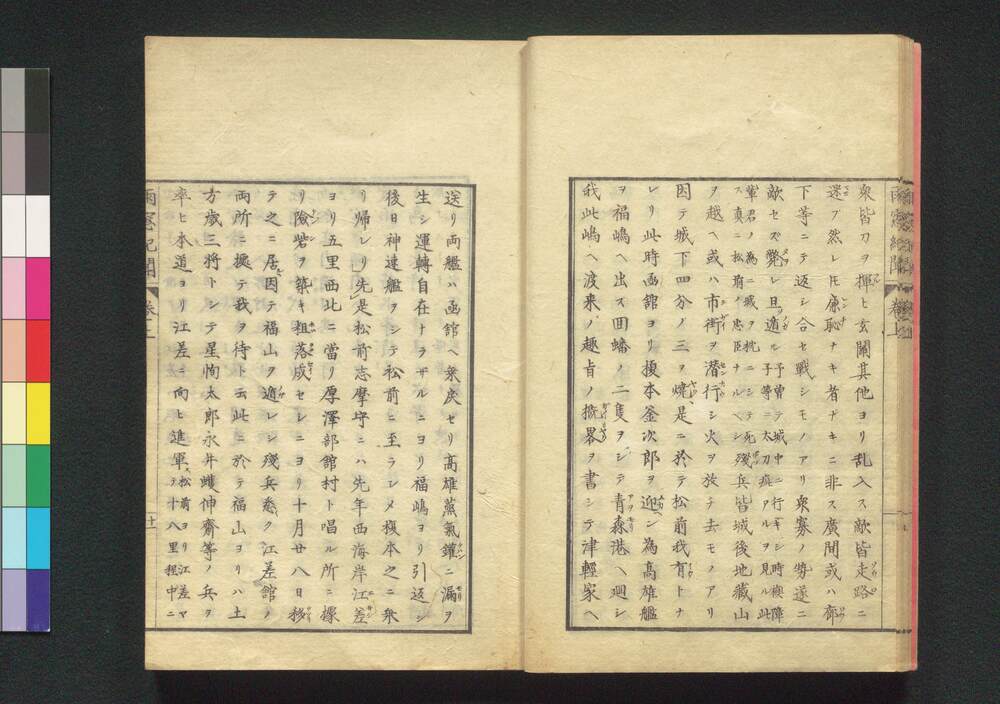 雨窓紀聞 巻上
衆皆刀ヲ揮ヒ玄関其他ヨリ乱入ス敵皆走路ニ
迷フ然レ𪜈廉恥ナキ者ナキニ非ス廣間或ハ廊
下等ニテ返シ合セ戦シモノアリ衆寡ノ勢遂ニ
敵セズ斃レ且遁ル予曽テ城中ニ行キシ時襖障
子等ニ太刀痕アルヲ見ル此
輩君ノ為ニ戎ヲ枕ニシテ死
ス真ニ松前ノ忠臣ナルヘシ残兵皆城後地蔵山
ヲ越ヘ或ハ市街ヲ潜行シ火ヲ放チ去モノアリ
因テ城下四分ノ三ヲ焼是ニ於テ松前我有トナ
レリ此時函館ヨリ榎本釜次郎ヲ迎ン為高雄艦
ヲ福嶋ヘ出ス回蟠ノ二隻ヲシテ青森港ヘ廻シ
我此嶋ヘ渡来ノ趣旨ノ撗畧ヲ書シテ津軽家ヘ
送リ両艦ハ函館ヘ乗戻セリ高雄蒸氣鑵ニ漏ヲ
生シ運轉自在ナラザルニヨリ福嶋ヨリ引返シ
後日神速艦ヲシテ松前ニ至ラシメ榎本之ニ乗
リ帰レリ先是松前志摩守ニハ先年西海岸江差
ヨリ五里西北ニ當リ厚澤部館村ト唱ル所ニ據
リ險砦ヲ築キ粗落成セレニヨリ十月廿八日移
テ之ニ居因テ福山ヲ遁レシ残兵悉ク江差館ノ
両所ニ據テ我ヲ待ト云此ニ於テ福山ヨリハ土
方歳三将トシテ星恂太郎永井蠖伸齋等ノ兵ヲ
率ヒ本道ヨリ江差ニ向ヒ進軍松前ヨリ江差マ
テ十八里程中ニ
雨窓紀聞 巻上